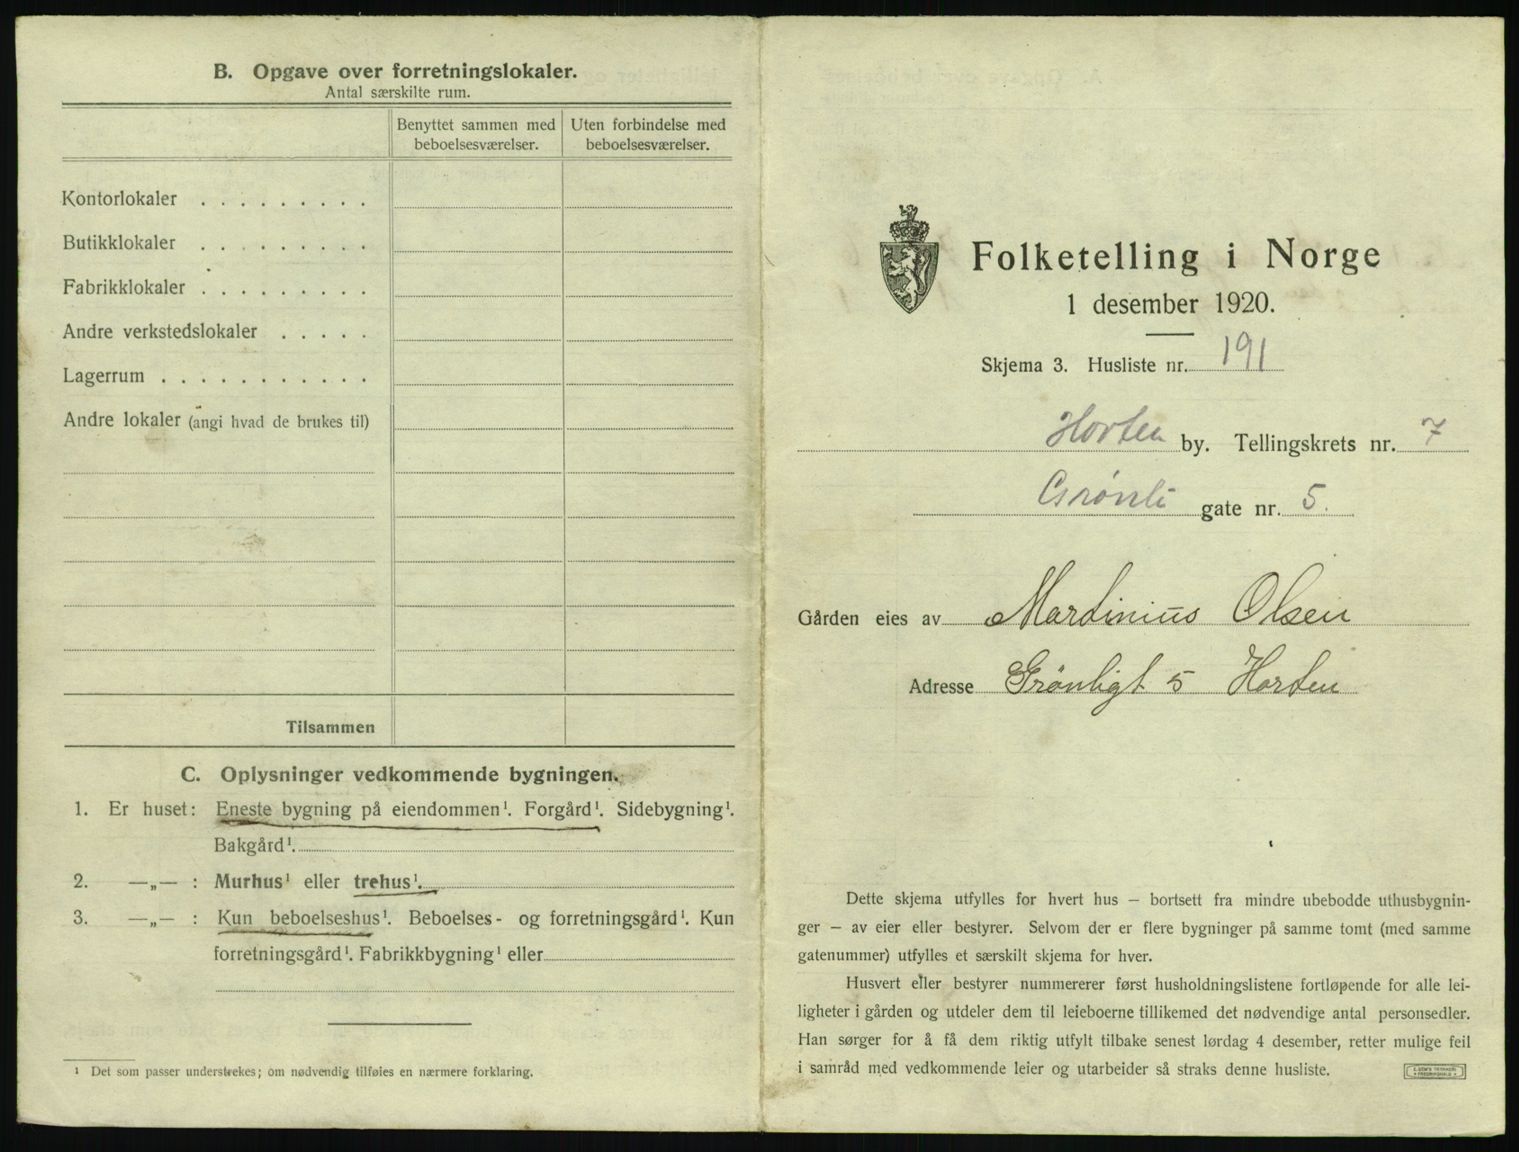 B. Opgave over forretningslokaler.
Antal særskilte rum.
Benyttet sammen med beboelsesværelser.
Uten forbindelse med beboelsesværelser.
Kontorlokaler . . . . . . . . .
Butikklokaler . . . . . . . . .
Fabrikklokaler . . . . . . . . .
Andre verkstedslokaler . . . . .
Lagerrum . . . . . . . . . . .
Andre lokaler (angi hvad de brukes til)
Tilsammen
C. Oplysninger vedkommende bygningen.
1. Er huset: Eneste bygning på eiendommen¹. Forgård¹. Sidebygning¹.
Bakgård¹.
2. —„— : Murhus¹ eller trehus¹.
3. —„— : Kun beboelseshus¹. Beboelses- og forretningsgård¹. Kun
forretningsgård¹. Fabrikkbygning¹ eller
¹ Det som passer understrekes; om nødvendig tilføies en nærmere forklaring.
Folketelling i Norge
1 desember 1920.
Skjema 3. Husliste nr. 191
Horten by. Tellingskrets nr. 7
Grønli gate nr. 5.
Gården eies av Martinius Olsen
Adresse Grönligt 5 Horten
Dette skjema utfylles for hvert hus – bortsett fra mindre ubebodde uthusbygnin-
ger – av eier eller bestyrer. Selvom der er flere bygninger på samme tomt (med samme
gatenummer) utfylles et særskilt skjema for hver.
Husvert eller bestyrer nummererer først husholdningslistene fortløpende for alle lei-
ligheter i gården og utdeler dem til leieboerne tillikemed det nødvendige antal personsedler.
Han sørger for å få dem riktig utfylt tilbake senest lørdag 4 desember, retter mulige feil
i samråd med vedkommende leier og utarbeider så straks denne husliste.